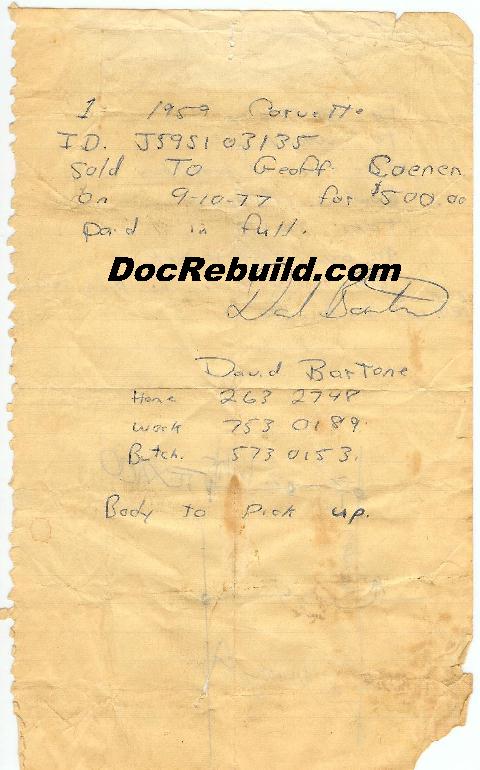 1 1959 Corvette
I.D. J59S103135
Sold To Geoff Coenen
On 9-10-77 for $500.00
paid in full.
DocRebuild.com
David Bartone
Home 263 2748
Work 753 0189
Butch. 573 0153.
Body to pick up.